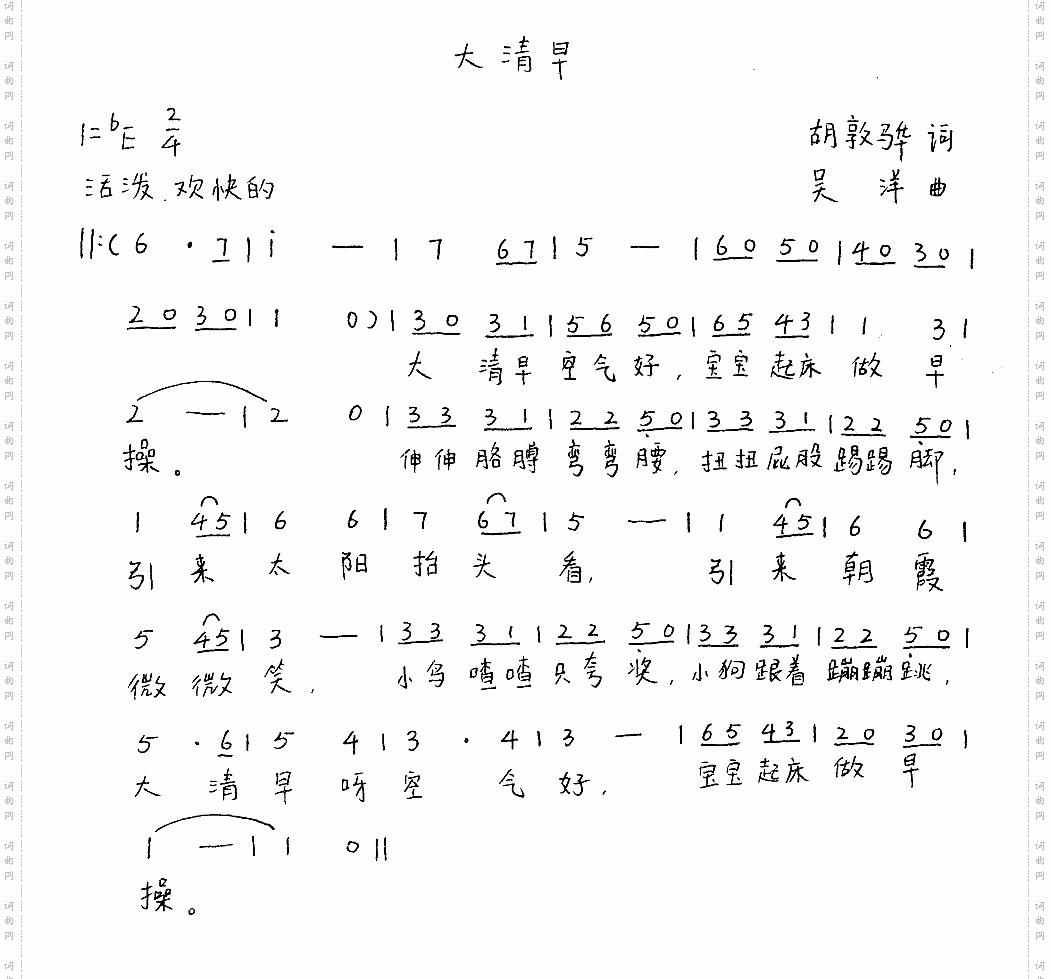 大清早
1=♭E 2/4
胡敦骅 词
活泼.欢快的
吴 洋 曲
‖:( 6 · 7 | i — | 7 6 7 | 5 — | 6 0 5 0 | 4 0 3 0 |
2 0 3 0 | 1 0 ) | 3 0 3 1 | 5 6 5 0 | 6 5 4 3 | 1 3 |
大 清早 空气好, 宝宝起床 做 早
2 — | 2 0 | 3 3 3 1 | 2 2 5 0 | 3 3 3 1 | 2 2 5 0 |
操。 伸伸胳膊 弯弯腰, 扭扭屁股 踢踢脚,
1 4 5 | 6 6 | 7 6 7 | 5 — | 1 4 5 | 6 6 |
引 来 太 阳 抬 头 看, 引 来 朝 霞
5 4 5 | 3 — | 3 3 3 1 | 2 2 5 0 | 3 3 3 1 | 2 2 5 0 |
微 微 笑, 小鸟喳喳只夸奖, 小狗跟着蹦蹦跳,
5 · 6 | 5 4 | 3 · 4 | 3 — | 6 5 4 3 | 2 0 3 0 |
大 清 早 呀 空 气 好, 宝宝起床 做 早
1 — | 1 0 ‖
操。
词曲网